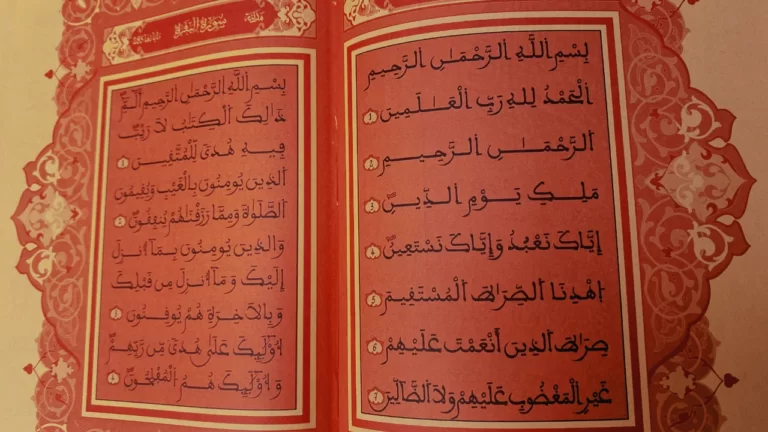 بِسْمِ اللَّهِ الرَّحْمَـٰنِ الرَّحِيمِ
الْحَمْدُ لِلهِ رَبِّ الْعَـٰلَمِينَ ١
الرَّحْمَـٰنِ الرَّحِيمِ ٢
مَلِكِ يَوْمِ الدِّينِ ٣
إِيَّاكَ نَعْبُدُ وَإِيَّاكَ نَسْتَعِينُ ٤
اهْدِنَا الصِّرَاطَ الْمُسْتَقِيمَ ٥
صِرَاطَ الذِينَ أَنْعَمْتَ عَلَيْهِمْ ٦
غَيْرِ الْمَغْضُوبِ عَلَيْهِمْ وَلَا الضَّالِّينَ ٧
سُورَةُ الْبَقَرَةِ
بِسْمِ اللَّهِ الرَّحْمَـٰنِ الرَّحِيمِ الٓمٓ
ذَٰلِكَ الْكِتَـٰبُ لَا رَيْبَ
فِيهِ هُدًى لِّلْمُتَّقِينَ ١
الذِينَ يُومِنُونَ بِالْغَيْبِ وَيُقِيمُونَ
الصَّلَوٰةَ وَمِمَّا رَزَقْنَـٰهُمْ يُنفِقُونَ ٢
وَالذِينَ يُومِنُونَ بِمَآ أُنزِلَ
إِلَيْكَ وَمَآ أُنزِلَ مِن قَبْلِكَ
وَبِالْآخِرَةِ هُمْ يُوقِنُونَ ٣
أُوْلَـٰئِكَ عَلَىٰ هُدًى مِّن رَّبِّهِمْ
وَأُوْلَـٰئِكَ هُمُ الْمُفْلِحُونَ ٤